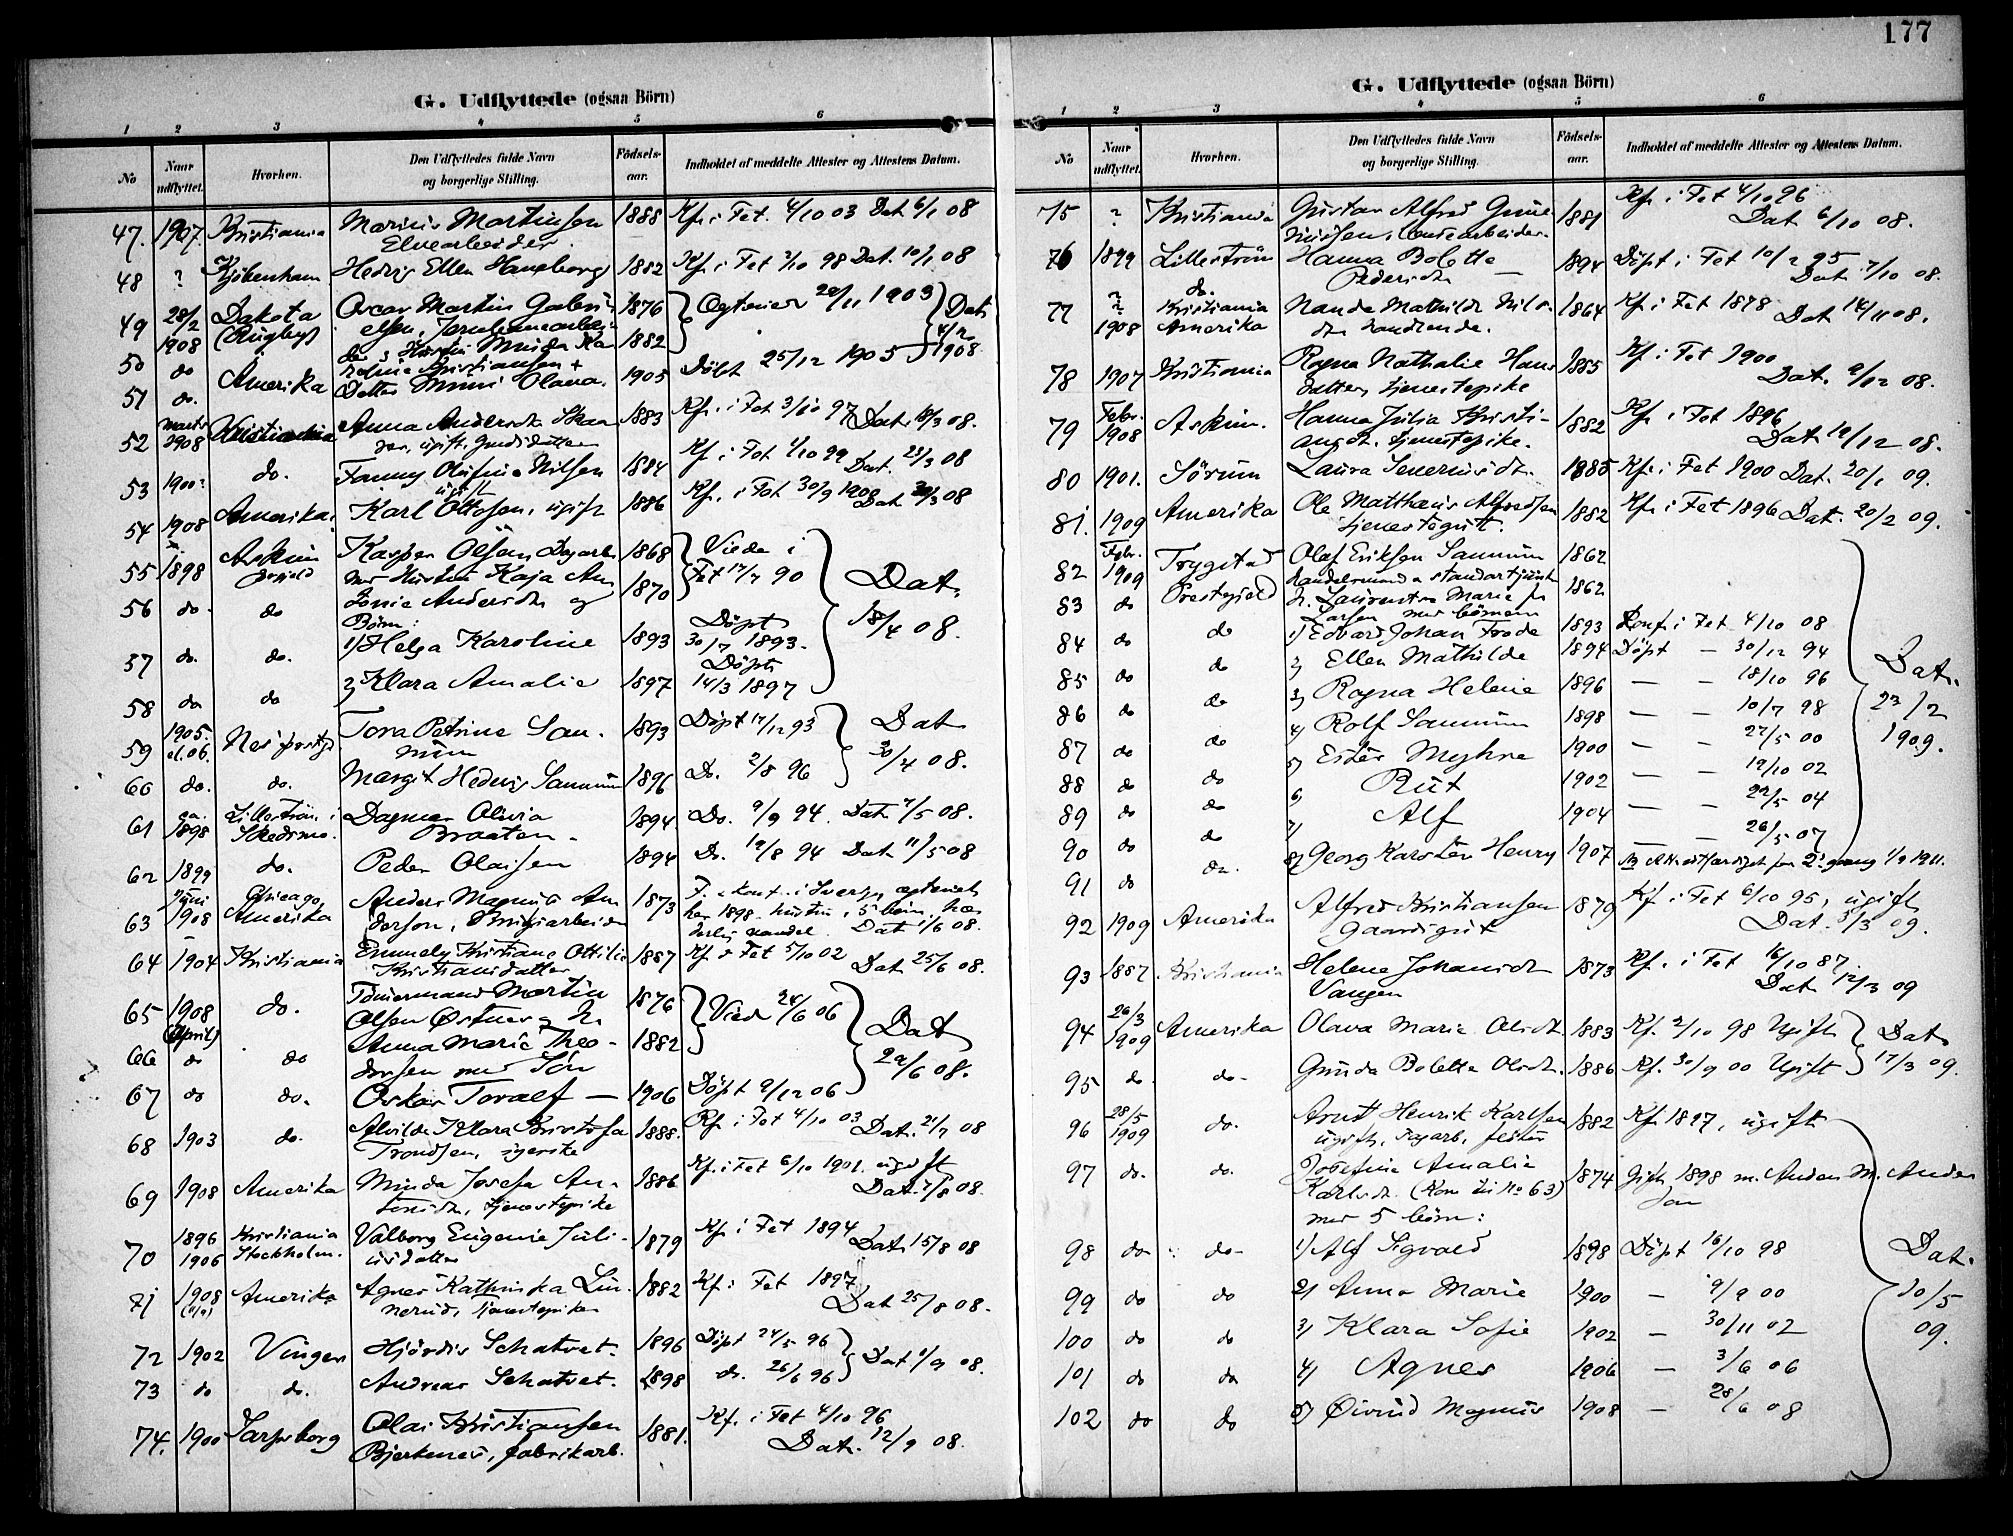 177
G. Udflyttede (ogsaa Börn)
1 2 3 4 5 6
No Naar udflyttet. Hvorhen. Den Udflyttedes fulde Navn og borgerlige Stilling. Födsels-aar. Indholdet af meddelte Attester og Attestens Datum.
47. 1907. Kristiania Marius Martinsen 1888 Kf. i Fet. 4/10 03 Dat 6/1 08
Elvearbeider.
48 ? Kjöbenhavn Hedvig Ellen 1882 Kf. i Fet 2/10 98 Dat. 10/1 08
49 28/2 1908 Dakota (Rugby) Oscar Martin Gabri- 1876 Egteviet 20/11 1903 Dat.
elsen,
50 do Hustru Minda Ka 1882 4/2 1908.
roline Kristiansen +
51 do. Amerika Datter Olava. 1905 Döbt 25/12 1905
52 marts 1908 Kristiania Anna Andersdtr. 1883 Kf. i Fet 3/10 97 Dat. 18/3 08.
ugift,
53 1900? do. Fanny Olufine Nilsen 1884 Kf. i Fet 1/10 99 Dat. 23/3 08
ugift
54 1908 Amerika. Karl Ottosen, ugift 1886 Kf. i Fet 30/9 1900 Dat 30/3 08
55 1898 Askim Kasper Olsen Dagarb. 1868 Viede i
56 do. do med Hustru Kaja An 1870 Fet 17/7 90 Dat.
tonie Andersdtr. og 18/4 08.
Börn:
57 do. do. 1) Helga Karoline 1893 Döpt 30/7 1893.
58 do do 2) Klara Amalie 1897 Döpt 14/3 1897
59 1905. el. 06. Nes prestgj Tora Petrine San- 1893 Döpt 17/12 93 Dat
num 30/4 08.
60 do. do. Margit Hedvig Sannum 1896 Do. 2/8 96
61 ca. 1898 Lilleström i Skedsmo. Dagmar Olivia 1894 Do. 9/9 94. Dat. 7/5 08.
Braaten
62 1899 do. Peder Olaisen 1894 Do. 19/8 94 Dat 11/5 08
63 juni 1908 Chicago Amerika Anders Magnus An 1873 F. & konf. i Sverge, egteviet
dersson, her 1898. hustru, 5 börn, hæ-
derlig vandel. Dat. 1/6 08.
64 1904 Kristiania Emmely Kristiane Ottilie 1887 Kf. i Fet 5/10 02
Kristiansdatter Dat 25/6 08.
65 1908 (April) do. Tömermand Martin 1876 Vied 24/6 06 Dat
Olsen Östner & H. 29/6 08.
66 do do Anna Marie Theo- 1882
dorsen med Sön
67 do do. Oskar Toralf — 1906 Döpt 9/12 06
68 1903 do. Alvilde Klara Kristofa 1888. Kf. i Fet 4/10 03 Dat. 21/7 08
Trondsen, syerske
69 1908 Amerika Minda Josefa An- 1886 Kf. i Fet 6/10 1901. ugift
tonsdtr., tjenestepike Dat. 7/8 08.
70 1896 1906 Kristiania Stockholm. Valborg Eugenie Juli- 1879 Kf. i Fet 1894
usdatter Dat. 15/8 08
71 1908 Amerika Agnes Kathinka Lin- 1882 Kf. i Fet 1897
nerud, tjenestepike Dat 25/8 08.
72 1902 Vinger Hjördis Schatvet. 1896 Döpt 24/5 96 Dat 1/9 08.
73 do do. Andreas Schatvet. 1898 do. 26/6 96
74. 1900 Sarpsborg Olai Kristiansen 1881. Kf. i Fet 4/10 96
Bjerkenes, fabrikarb. Dat. 12/9 08.
G. Udflyttede (ogsaa Börn)
1 2 3 4 5 6
No Naar udflyttet. Hvorhen. Den Udflyttedes fulde Navn og borgerlige Stilling. Födsels-aar. Indholdet af meddelte Attester og Attestens Datum.
75 ? Kristiania Gustav Alfred 1881 Kf. i Fet 4/10 96
Dat 6/10 08.
76 1899 Lilleström Hanna Bolette 1894 Döpt i Fet 10/2 95
Pedersdtr. — Dat 7/10 08.
77 ? 1908 do. Kristiania Amerika Nanda Mathilde Nils- 1864 Kf. i Fet 1878 Dat 14/11 08.
dtr. handlende.
78 1907 Kristiania Ragna Nathalie Hans 1885 Kf. i Fet 1900
datter, tjenestepike Dat. 9/12 08.
79 Febr. 1908 Askim. Hanna Julia Kristi- 1882 Kf. i Fet 1896
ansdtr. tjenestepike. Dat 19/12 08.
80 1901. Sörum Laura Severinsdtr. 1885 Kf. i Fet 1900 Dat. 20/1 09.
81. 1909 Amerika Ole Matthæus Alfredsen 1882 Kf. i Fet 1896 Dat. 20/2 09.
tjenestegutt.
82 Febr. 1909 Trygstad Olaf Eriksen Sannum 1862
83 do Prestgjeld H. Laurentse Marie f. 1862
Larsen med börnene
84 do do 1) Edvard Johan Frode 1893 Konf. i Fet 4/10 08
85 do do 2) Ellen Mathilde 1894 Döpt — 30/12 94 Dat.
86 do do 3) Ragna Helene 1896 — — 18/10 96 22/2
87 do do 4) Rolf Sannum 1898 — — 10/7 98 1909.
88 do do 5) Ester Meyhre 1900 — — 27/5 00
89 do do 6) Rut 1902 — — 19/10 02
90 do do 7) Alf 1904 — — 29/5 04
91 do do. 8) Georg Karsten Henry 1907 — — 26/5 07
for 2. gang 1/9 1911.
92 1909 Amerika Alfred Kristiansen 1879 Kf i Fet 6/10 95, ugift
gaardsgut Dat. 3/3 09.
93 1887 Kristiania Helene Johansdtr 1873 Kf. i Fet 16/10 87.
Vangen Dat 12/3 09
94 26/3 1909 Amerika Olava Marie Olsdtr. 1883 Kf. 2/10 98 Ugift Dat
95 do. do. Gunda Bolette Olsdtr. 1886 Kf. 30/9 00 Ugift 17/3 09.
96 28/5 1909 do. Arnt Henrik Karlsen 1882 Kf. 1897, ugift
ugift, dagarb,
97 do. do. Josefine Amalie 1874 Gift 1898 m. Anders M. Anders
Karlsdtr. (Kone til No 63) son
med 5 börn:
98 do do 1) Alf Sigvald 1898 Döpt 16/10 98 Dat.
99 do do 2) Anna Marie 1900 — 9/9 00 10/5
100 do do 3) Klara Sofie 1902 — 30/11 02 09.
101 do do 4) Agnes 1906 — 3/6 06
102 do do 5) Öivind Magnus 1908 — 28/6 08